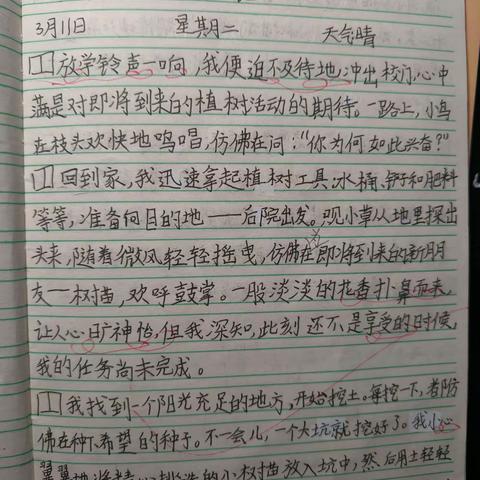 3月11日 星期二 天气晴
放学铃声一响,我便迫不及待地冲出校门,心中
满是对即将到来的植树活动的期待。一路上,小鸟
在枝头欢快地鸣唱,仿佛在问:“你为何如此兴奋?”
回到家,我迅速拿起植树工具:水桶、铲子和肥料
等等,准备向目的地——后院出发。观小草从地里探出
头来,随着微风轻轻摇曳,仿佛在即将到来的新朋
友一树苗,欢呼鼓掌。一股淡淡的花香扑鼻而来,
让人心旷神怡,但我深知,此刻还不是享受的时候,
我的任务尚未完成。
我找到一个阳光充足的地方,开始挖土。每挖一下,都仿
佛在种下希望的种子。不一会儿,一个大坑就挖好了。我小心
翼翼地将精心挑选的小树苗放入坑中,然后用土轻轻